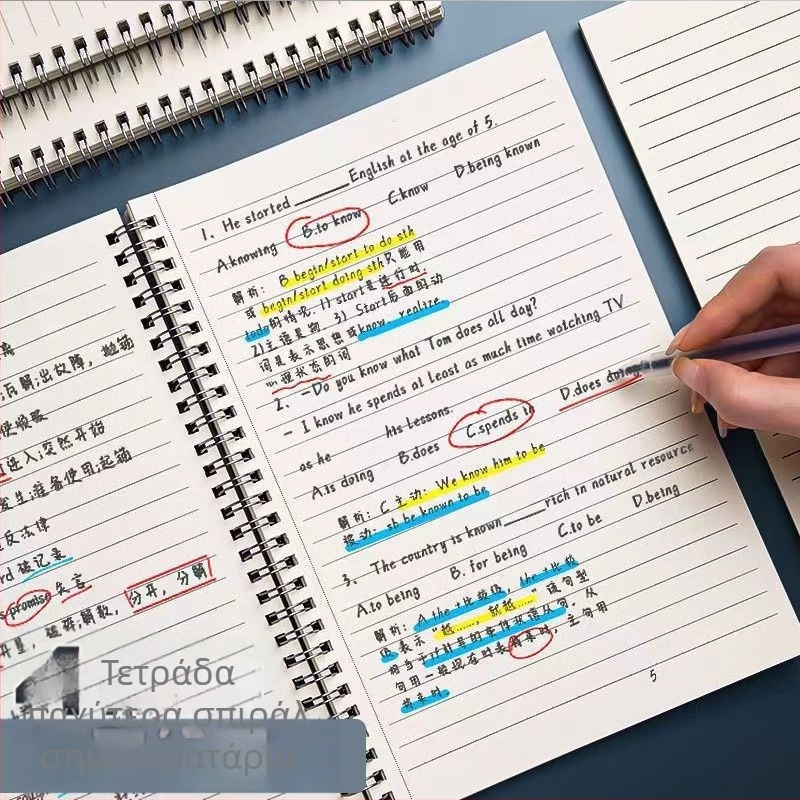 障
后解;出故障, 抛锚
使顺服
进入;突然开始
发生;准备使用;起锚
反法律
rd 破记录
promise 失言
分开, 分解
开垦, 破碎;解散,
1、He started ______English at the age of 5.
A.knowing B.to know C.know D.being known
解析: B begin/start to do sth
或 begin/start doing sth只能用
todo的情况. 1) start是进行时.
2)主语是物. 3) Start后面的动
词是表示思想或know, realize
心理状态的词
2、-Do you know what Tom does all day?
- I know he spends at least as much time watching TV
as he ______ his Lessons.
A.is doing B.does C.spends in D.does doing
解析: C 主动: We know him to be
被动: sb be known to be
3、The country is known______rich in natural resource
A.to being B. for being C.to be D.being
解析: A the +比较级, the +比较
级 表示 "越……, 就越……" 该句型
相当于 从
句用一般现在时表将来时, 主句用
将来时
5
Τετράδα
σπιράλ